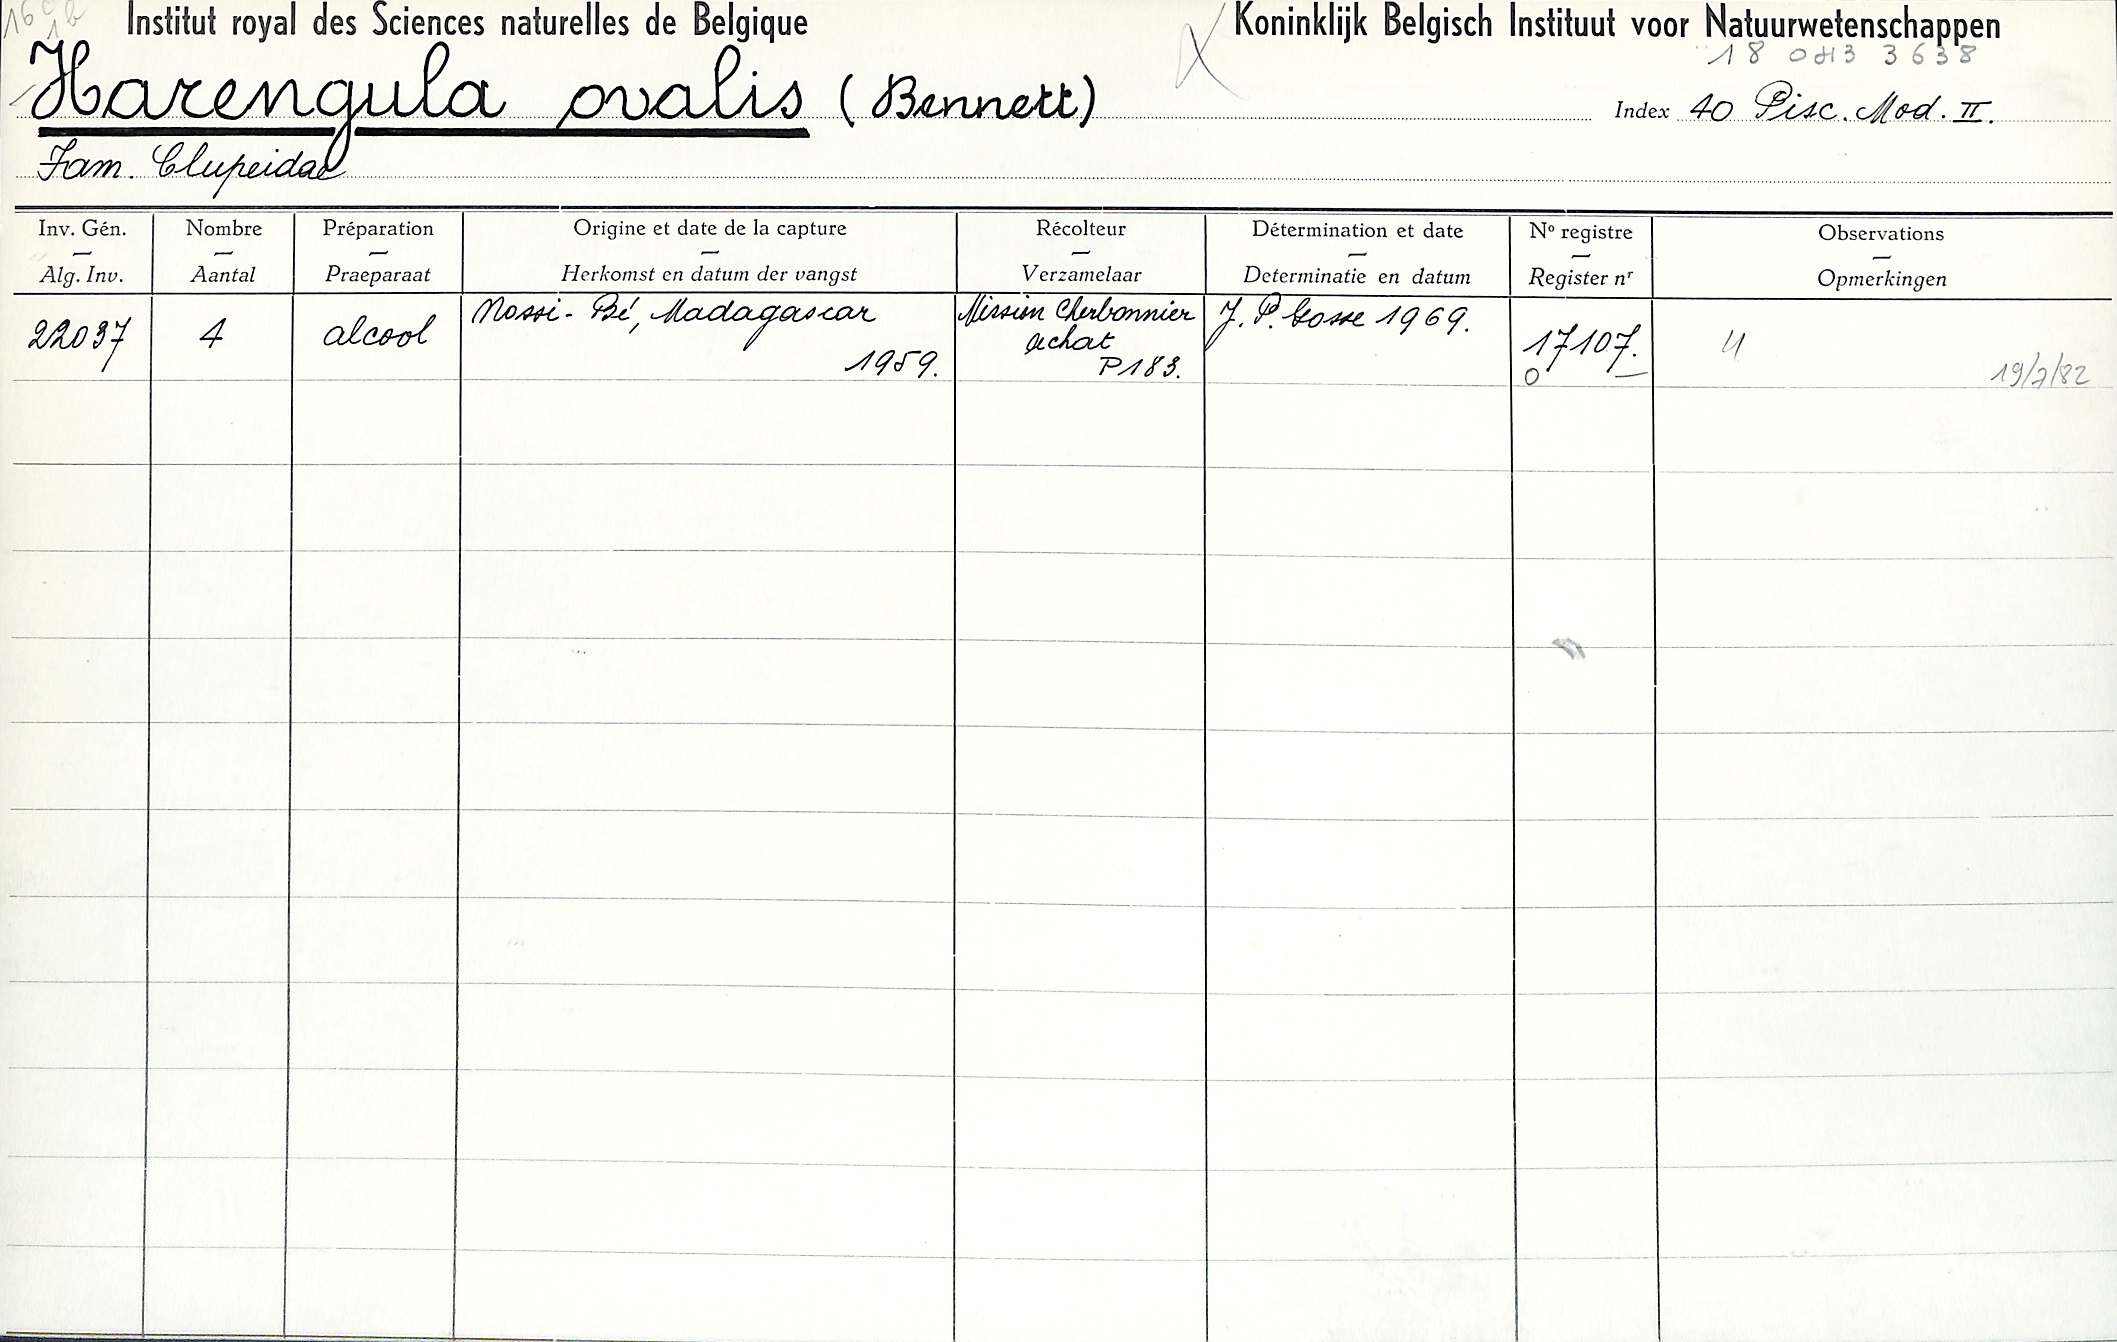 Institut royal des Sciences naturelles de Belgique
Koninklijk Belgisch Instituut voor Natuurwetenschappen
Harengula ovalis (Bennett)
Index 40 Pisc. Mod. II.
Fam. Clupeidae
Inv. Gén. Nombre Préparation Origine et date de la capture Récolteur Détermination et date Nº registre Observations
Alg. Inv. Aantal Praeparaat Herkomst en datum der vangst Verzamelaar Determinatie en datum Register nr Opmerkingen
22037 4 alcool Nossi-Bé, Madagascar
1959.
Mission Cherbonnier
achat
P183.
J. P. Gosse 1969.
17107.
0
4
19/7/82